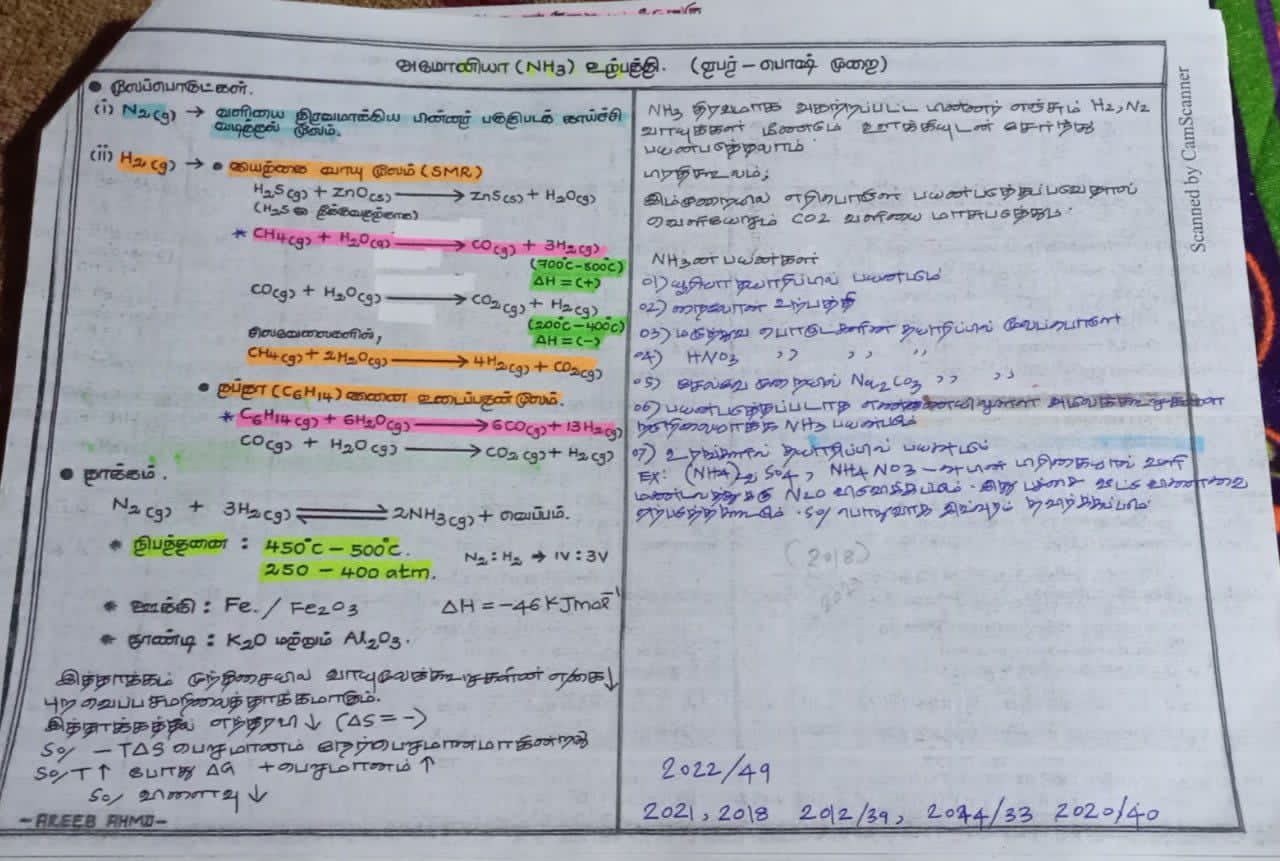 அமோனியா (NH3) உற்பத்தி. (ஏபர் - பொஷ் முறை)
• மூலப்பொருட்கள்.
(i) N2(g) → வளியை திரவமாக்கிய பின்னர் பகுதிபடக் காய்ச்சி
வடித்தல் மூலம்.
(ii) H2(g) → • இயற்கை வாயு மூலம் (SMR)
H2S(g) + ZnO(s) ⟶ ZnS(s) + H2O(g)
(H2S ஐ நீக்குவதற்காக)
* CH4(g) + H2O(g) ⟶ CO(g) + 3H2(g)
(700°C-800°C)
ΔH = (+)
CO(g) + H2O(g) ⟶ CO2(g) + H2(g)
(200°C-400°C)
சிலவேளைகளில்,
ΔH = (-)
CH4(g) + 2H2O(g) ⟶ 4H2(g) + CO2(g)
• நப்தா (C6H14) உடைப்பதன் மூலம்.
* C6H14(g) + 6H2O(g) ⟶ 6CO(g) + 13H2(g)
CO(g) + H2O(g) ⟶ CO2(g) + H2(g)
• தாக்கம்.
N2(g) + 3H2(g) ⇌ 2NH3(g) + வெப்பம்.
* நிபந்தனை : 450°C - 500°C.
250 - 400 atm.
N2 : H2 → 1V : 3V
* ஊக்கி : Fe / Fe2O3
ΔH = -46 KJmol-1
* தூண்டி : K2O மற்றும் Al2O3.
இத்தாக்கம் முந்திசையில் வாயு மூலக்கூறுகளின் எண்ணிக்கை ↓
புறவெப்ப சமநிலைத்தாக்கமாகும்.
இத்தாக்கத்தில் எந்திரபி ↓ (ΔS = -)
So/ - TΔS பெறுமானம் நேர்பெறுமானமாகின்றது
So/ T↑ போது ΔG + பெறுமானம் ↑
So/ விளைவு ↓
- AREEB AHMD -
NH3 திரவமாக அகற்றப்பட்ட பின்னர் எஞ்சும் H2, N2
வாயுக்கள் மீண்டும் ஊக்கியுடன் சேர்ந்து
பயன்படுத்தலாம்
பிரதிகூலம்;
இம்முறையில் எரிபொருள் பயன்படுத்தப்படுவதால்
வெளியேறும் CO2 வளியை மாசுபடுத்தும்.
NH3ன் பயன்கள்
01) யூரியா தயாரிப்பில் பயன்படும்
02) நைலோன் உற்பத்தி
03) மருத்துவ பொருட்களின் தயாரிப்பில் மூலப்பொருள்
04) HNO3 ,, ,, ,,
05) சொல்வே முறையில் Na2CO3 ,, ,,
NH3 பயன்படும்
07) உரங்களில் தயாரிப்பில் பயன்படும்
Ex: (NH4)2 SO4, NH4 NO3
N2O
(2018)
2022/49
2021, 2018 2012/39, 2020/40
Scanned by CamScanner